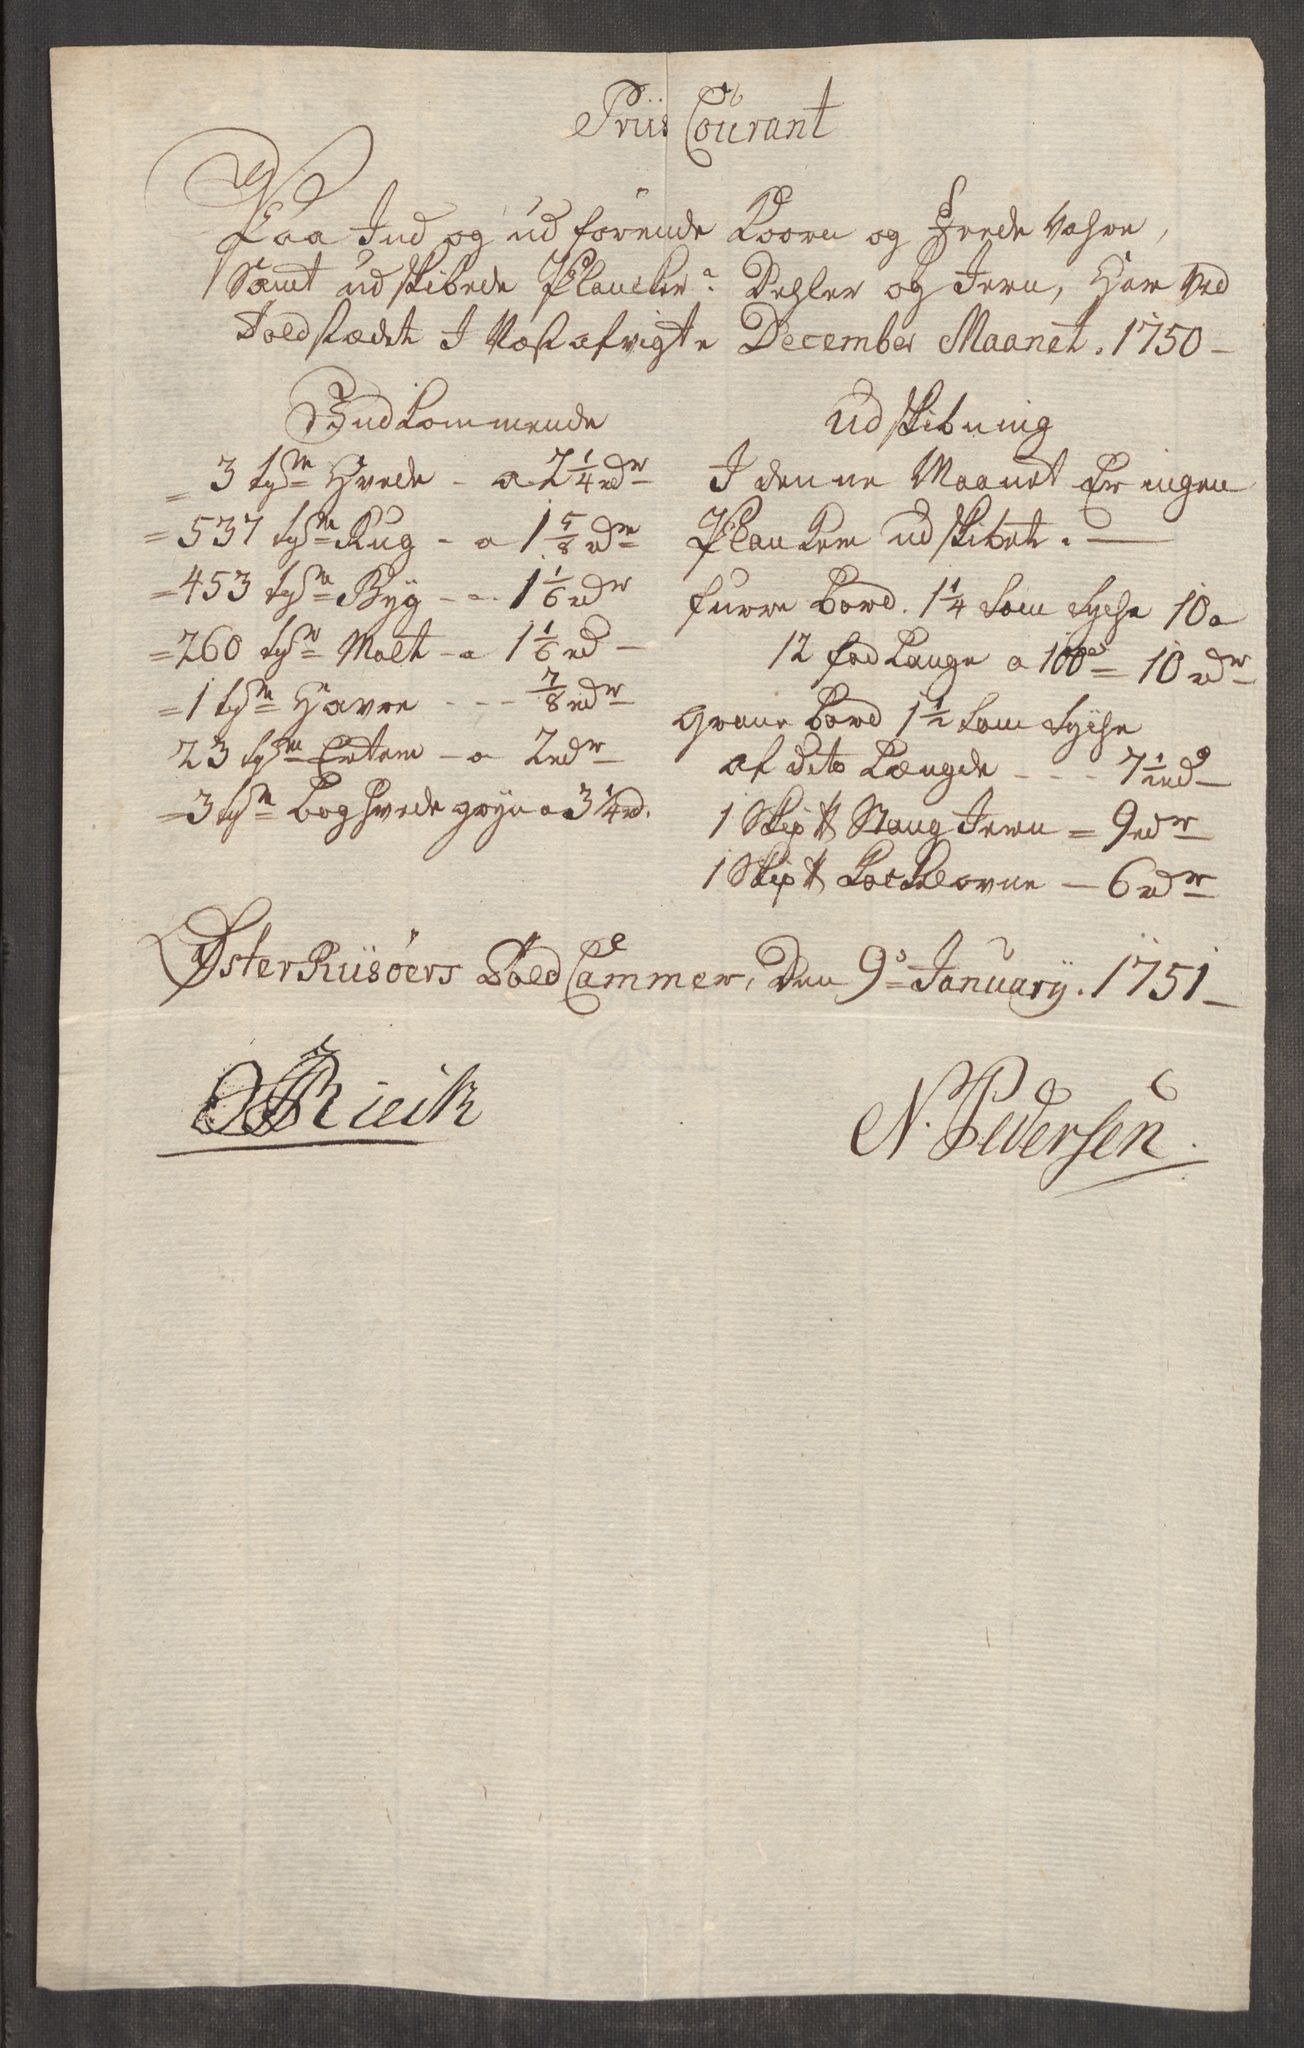 Priis Courant
Paa Ind og udførende Koorn og Fede Vahre,
Samt udskibede Plancker, Dehler og Jern, Her Ved
Toldstædet I Næst afvigte December Maanet. 1750 –
Indkommende
= 3 tdr Hvede – a 2 1/4 rdr
= 537 tdr Rug – a 1 5/8 rdr
= 453 tdr Byg – a 1 1/6 rdr
= 260 tdr Malt – a 1 1/6 rd –
= 1 tdr Havre - - - 7/8 rdr
23 tdr Erter – a 2 rdr
= 3 tdr Boghvede gryn a 3 1/4 rd.
Udskibning
I denne Maanet Er ingen
Planker udskibet. —
furre Bord. 1 1/4 tom tyche 10 a
12 fod Lange a 100de = 10 rdr
grane Bord 1 1/2 tom tyche
af dito Længde - - - 7 1/2 rd –
1 Skip ℔ Stang Jern = 9 rdr
1 Skip ℔ Kackelovne – 6 rdr
ØsterRiisøers Told Cammer, Den 9de January. 1751 –
N. Pedersen